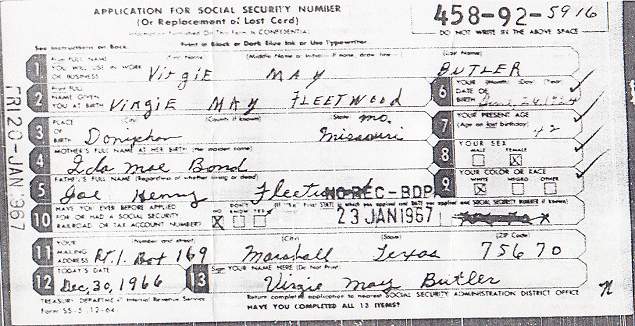 APPLICATION FOR SOCIAL SECURITY NUMBER
(Or Replacement of Lost Card)
Information Furnished On This Form Is CONFIDENTIAL
458-92-5916
DO NOT WRITE IN THE ABOVE SPACE
See Instructions on Back. Print in Black or Dark Blue Ink or Use Typewriter
1 Print FULL NAME YOU WILL USE IN WORK OR BUSINESS (First Name) (Middle Name or Initial—if none, draw line) (Last Name)
VirgiE MAY BUTLER
2 Print FULL NAME GIVEN YOU AT BIRTH
VIRGIE MAY FLEETWOOD
6 YOUR DATE OF BIRTH (Month) (Day) (Year)
June, 24, 1924
3 PLACE OF BIRTH (City) (County if known) (State)
Doniphan mo. Missouri
7 YOUR PRESENT AGE (Age on last birthday)
42
4 MOTHER'S FULL NAME AT HER BIRTH (Her maiden name)
Ida Mae Bond
8 YOUR SEX
MALE FEMALE
X
5 FATHER'S FULL NAME (Regardless of whether living or dead)
Joe Henry Fleetwood
9 YOUR COLOR OR RACE
WHITE NEGRO OTHER
X
NO REC-BDP
10 HAVE YOU EVER BEFORE APPLIED FOR OR HAD A SOCIAL SECURITY RAILROAD OR TAX ACCOUNT NUMBER?
NO DON'T KNOW YES
X
23 JAN 1967
11 YOUR MAILING ADDRESS (Number and street) (City) (State) (ZIP Code)
Rt. 1. Box 169 Marshall Texas 75670
12 TODAY'S DATE
Dec, 30, 1966
13 Sign YOUR NAME HERE (Do Not Print)
Virgie May Butler
TREASURY DEPARTMENT Internal Revenue Service
Form SS-5 12-64
Return completed application to nearest SOCIAL SECURITY ADMINISTRATION DISTRICT OFFICE
HAVE YOU COMPLETED ALL 13 ITEMS?
FRI 20-JAN 1967